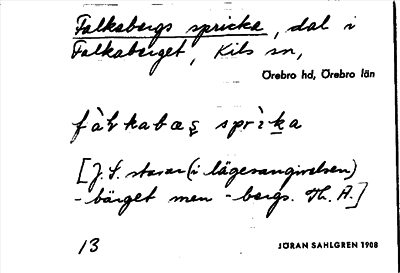 Falkabergs spricka, dal i
Falkaberget, Kils sn,
Örebro hd, Örebro län
fàlkabæʂ sprìka
[J. S. stavar (i lägesangivelsen)
-bärget men -bergs. Th. A.]
13
JÖRAN SAHLGREN 1908